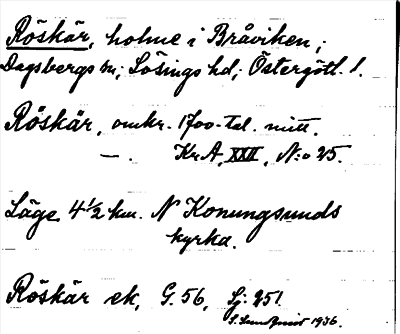 Röskär, holme i Bråviken,
Dagsbergs sn, Lösings hd, Östergötl. l.
Röskär, omkr. 1700-tal. mitt.
— . Kr.A. XXII, N:o 25.
Läge 4 ½ km. N Konungsunds
kyrka.
Röskär ek, G. 56, Lj: 251
1936.